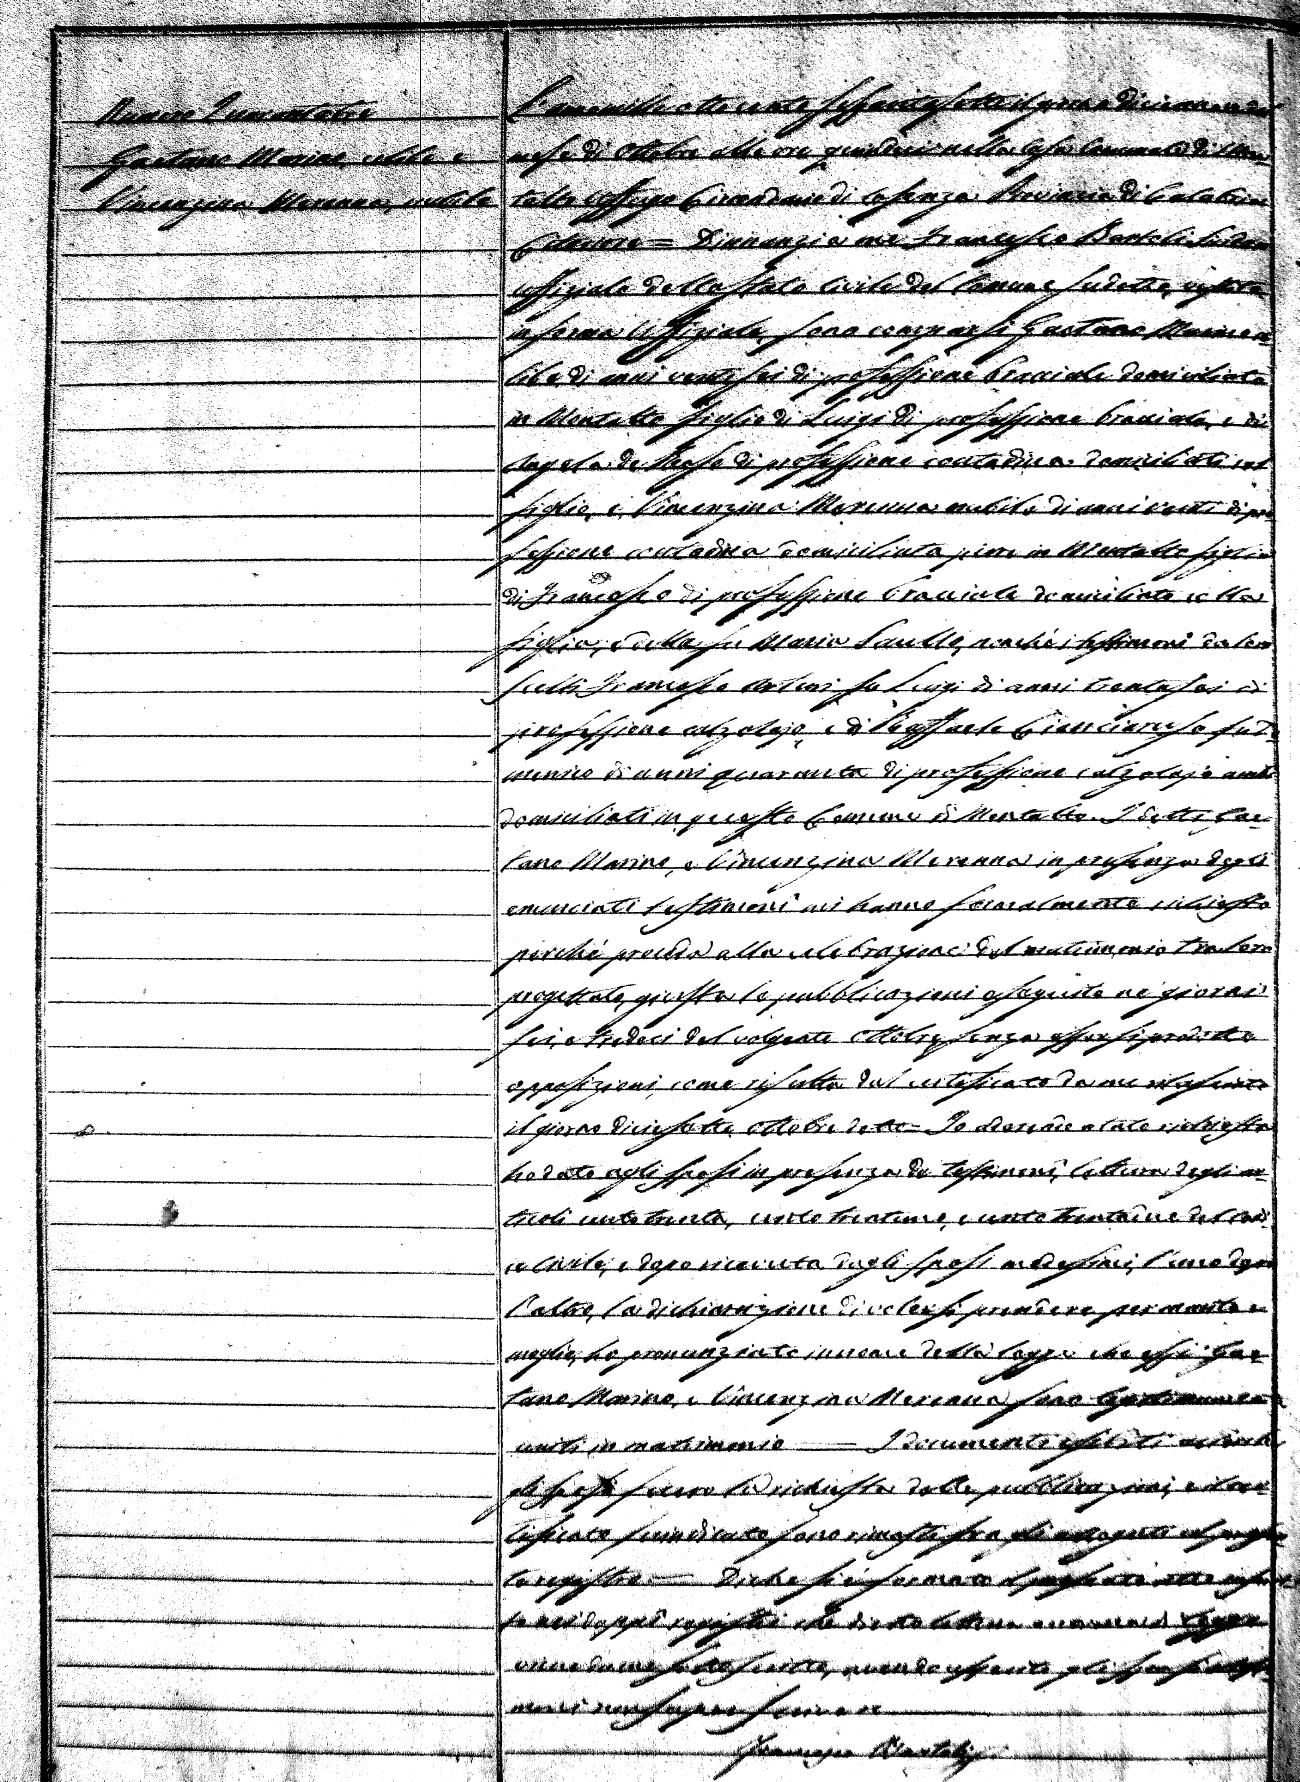 Numero Quarantatre
Gaetano Marino celibe e
Vincenzina Merenna nubile
L'anno mille ottocento sessantasette il giorno diciannove del
mese di Ottobre alle ore quindici nella Casa Comunale di Mon
talto Uffugo Circondario di Cosenza Provincia di Calabria
Citeriore = Dinnanzi a me Francesco Bartoli Sindaco
uffiziale dello stato Civile del Comune sudetto, vestito
in forma Uffiziale, sono comparsi Gaetano Marino ce-
libe di anni ventisei di professione bracciale domiciliato
in Montalto figlio di Luigi di professione bracciale, e di
Angela de Rose di professione contadina domiciliati col
figlio, e Vincenzina Merenna nubile di anni venti di pro
fessione contadina domiciliata pure in Montalto figlia
di Francesco di professione bracciale domiciliato colla
figlia, e della fu Maria Saullo, nonché i testimoni da loro
scelti Francesco fu Luigi di anni trentasei di
professione calzolajo, e di Raffaele Cianciaruso fu Do
menico di anni quaranta di professione calzolajo ambi
domiciliati in questo Comune di Montalto. I detti Gae-
tano Marino, e Vincenzina Merenna in presenza degli
enunciati testimoni mi hanno formalmente richiesto
perché proceda alla celebrazione del matrimonio tra loro
progettato, giusta le pubblicazioni eseguite ne' giorni
sei, e tredici del volgente Ottobre, senza essersi prodotte
opposizioni, come risulta dal certificato da me rilasciato
il giorno diciassette Ottobre detto = Io aderendo a tale richiesta
ho dato agli sposi in presenza de' testimoni, lettura degli ar-
ticoli cento trenta, cento trentuno, e cento trentadue del Codi
ce Civile, e dopo ricevuta dagli sposi medesimi, l'uno dopo
l'altro, la dichiarazione di volersi prendere per marito e
moglie, ho pronunziato in nome della legge che essi Gae-
tano Marino, e Vincenzina Merenna sono legittimamente
uniti in matrimonio — I documenti esibiti
gli sposi fecero la richiesta delle pubblicazioni, e il cer-
tificato sumdicato sono rimasti fra gli allegati al
to registro — Di che si è formato il presente atto
ne' doppi registri che dietro lettura
viene da me sottoscritto, avendo asserito gli sposi e testi-
moni non sapere scrivere
Francesco Bartoli